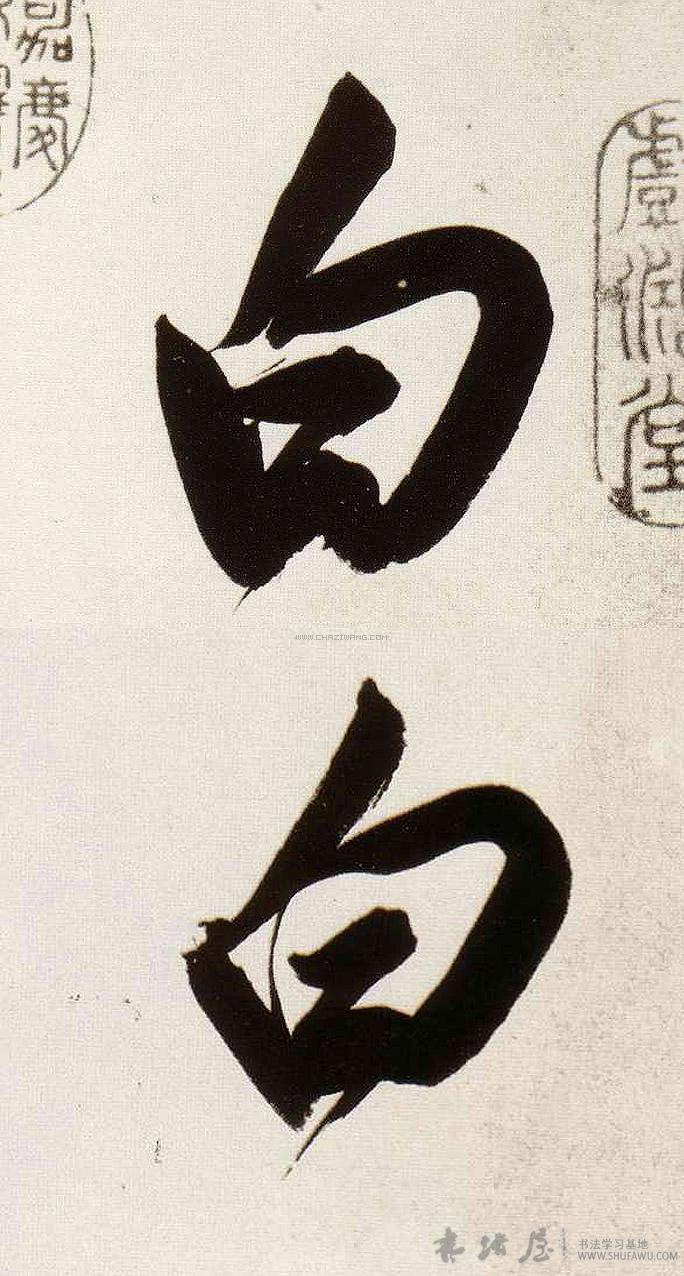 嘉慶
白
虚淡堂
WWW.CHAZIWANG.COM
白
书法屋
书法学习基地
WWW.SHUFAWU.COM